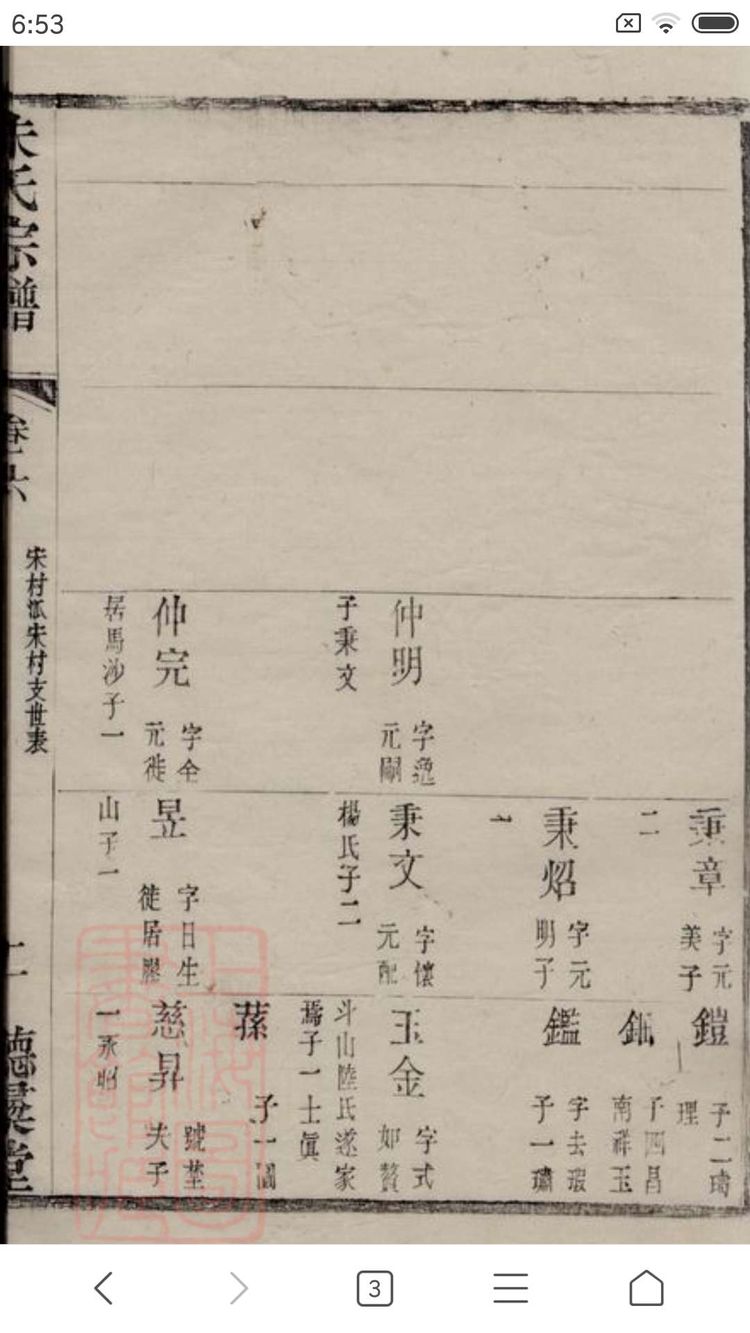 6:53
仲明
字逸
元嗣
子秉文
仲完
字全
元徙
居馬沙子一
秉章
字元
美子
二
秉炤
字元
明子
一
秉文
字懷
元配
楊氏子二
昱
字日生
徙居
山子一
鎧
子二
理
子四昌
南祥玉
鑑
字去瑕
子一
玉金
字式
如贅
斗山陸氏遂家
焉子一士眞
蓀
子一
慈昇
夫子
一永昭
氏宗譜
卷六
宋村派宋村支世表
二
堂
3